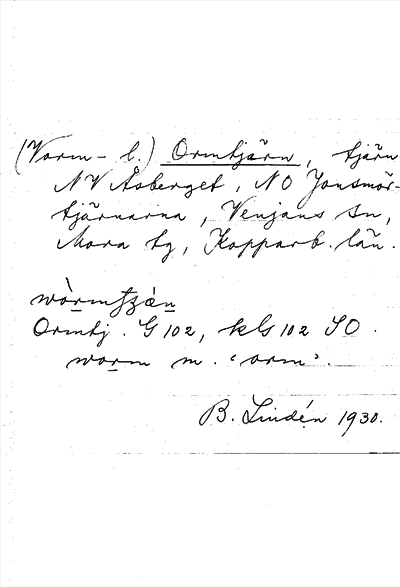 (Vorm- l.) Ormtjärn, tjärn
NV Åsberget, NO Jonsmös-
tjärnarna, Venjans sn,
Mora tg, Kopparb. län.
Ormtj. G 102, kls 102 SO.
worm m. 'orm'.
B. Lindén 1930.